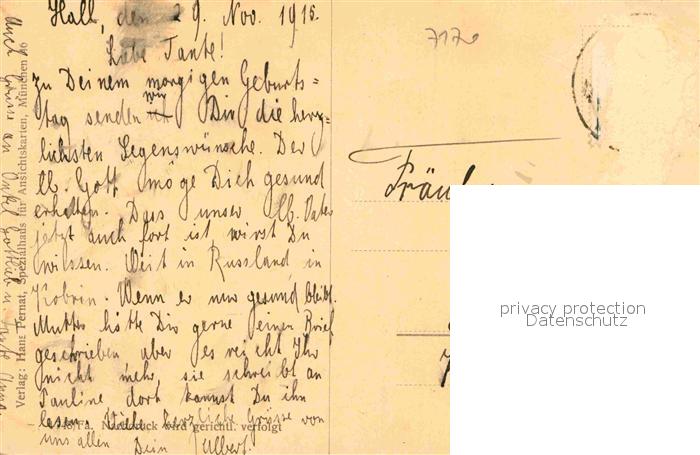 Hall, den 29. Nov. 1915.
Liebe Tante!
Zu Deinem morgigen Geburts=
tag senden wir Dir die herz-
lichsten Segenswünsche. Der
lb. Gott möge Dich gesund
erhalten. Dass unser lb. Vater
jetzt auch fort ist wirst Du
wissen. Weit in Russland, in
Kobrin. Wenn er nur gesund bleibt.
Mutter hätte Dir gerne einen Brief
geschrieben aber es reicht Ihr
nicht mehr, sie schreibt an
Pauline dort kannst Du ihn
lesen. Viele herzliche Grüsse von
uns allen Dein Albert.
Auch Grüsse an Onkel Gottlieb u.
Verlag: Hans Pernat, Spezialhaus für Ansichtskarten, München 46
Nachdruck wird gerichtl. verfolgt
7170
Fräul
privacy protection
Datenschutz